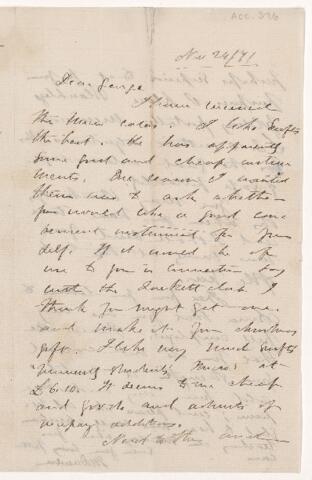 ACC. 376
Nov 24/71
Dear George
I have received
the three cata. I like Swifts
the best. He has apparently
some good and cheap instru
ments. One reason I wanted
them was to ask whether
you would like a good con
venient instrument for your
self. If it would be of
use to you in connection say
with the Quekett club I
think you might get one
and make it your christmas
gift. I like very much Swifts
Students at
£6.10. It seems to me cheap
and good and admits of
additions.
Next to this